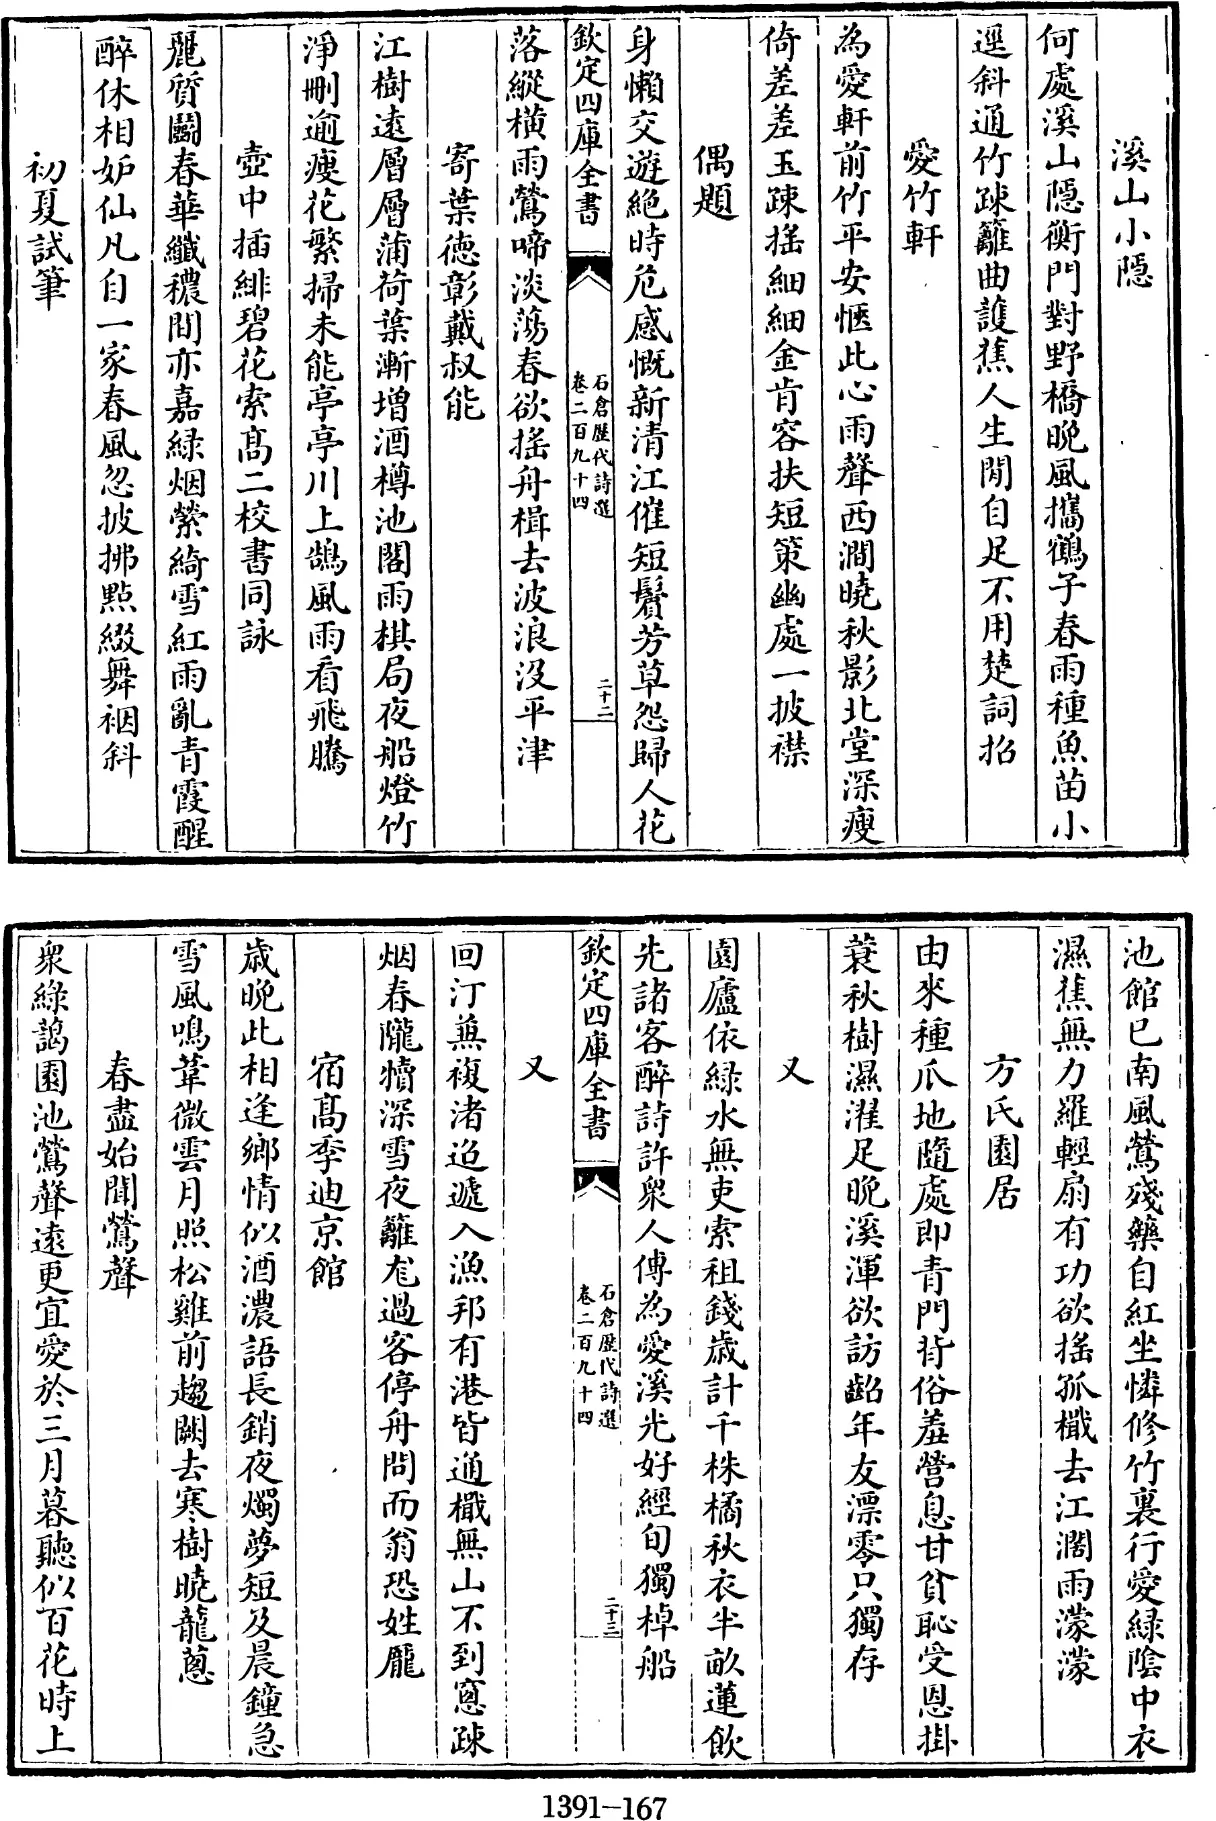 溪山小隱
何處溪山隱衡門對野橋晩風攜鶴子春雨種魚苗小
逕斜通竹疎籬曲護蕉人生閒自足不用楚詞招
愛竹軒
為愛軒前竹平安愜此心雨聲西澗曉秋影北堂深瘦
倚差差玉疎搖細細金肯容扶短策幽處一披襟
偶題
身懶交遊絶時危感慨新清江催短鬢芳草怨歸人花
欽定四庫全書
石倉歷代詩選
卷二百九十四
二十二
落縱横雨鶯啼淡蕩春欲搖舟楫去波浪没平津
寄葉徳彰戴叔能
江樹逺層層蒲荷葉漸增酒樽池閣雨棋局夜船燈竹
淨刪逾瘦花繁掃未能亭亭川上鵠風雨看飛騰
壺中插緋碧花索髙二校書同詠
麗質鬭春華纖穠間亦嘉緑烟縈綺雪紅雨亂青霞醒
醉休相妒仙凡自一家春風忽披拂點綴舞裀斜
初夏試筆
池館已南風鶯殘藥自紅坐憐修竹裏行愛緑隂中衣
濕蕉無力羅輕扇有功欲搖孤檝去江濶雨濛濛
方氏園居
由來種瓜地隨處即青門背俗羞營息甘貧恥受恩掛
蓑秋樹濕濯足晩溪渾欲訪齠年友漂零只獨存
又
園廬依緑水無吏索租錢歳計千株橘秋衣半畝蓮飲
先諸客醉詩許衆人傳為愛溪光好經旬獨棹船
欽定四庫全書
石倉歷代詩選
卷二百九十四
二十三
又
回汀兼複渚迢遞入漁邦有港皆通檝無山不到窻疎
烟春隴犢深雪夜籬尨過客停舟問而翁恐姓龎
宿髙季迪京館
歳晩此相逢鄉情似酒濃語長銷夜燭夢短及晨鐘急
雪風鳴葦微雲月照松雞前趨闕去寒樹曉蘢蔥
春盡始聞鶯聲
衆緑藹園池鶯聲逺更宜愛於三月暮聽似百花時上
1391—167